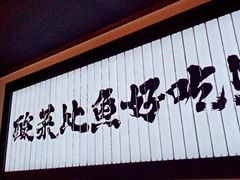 酸菜比鱼好吃